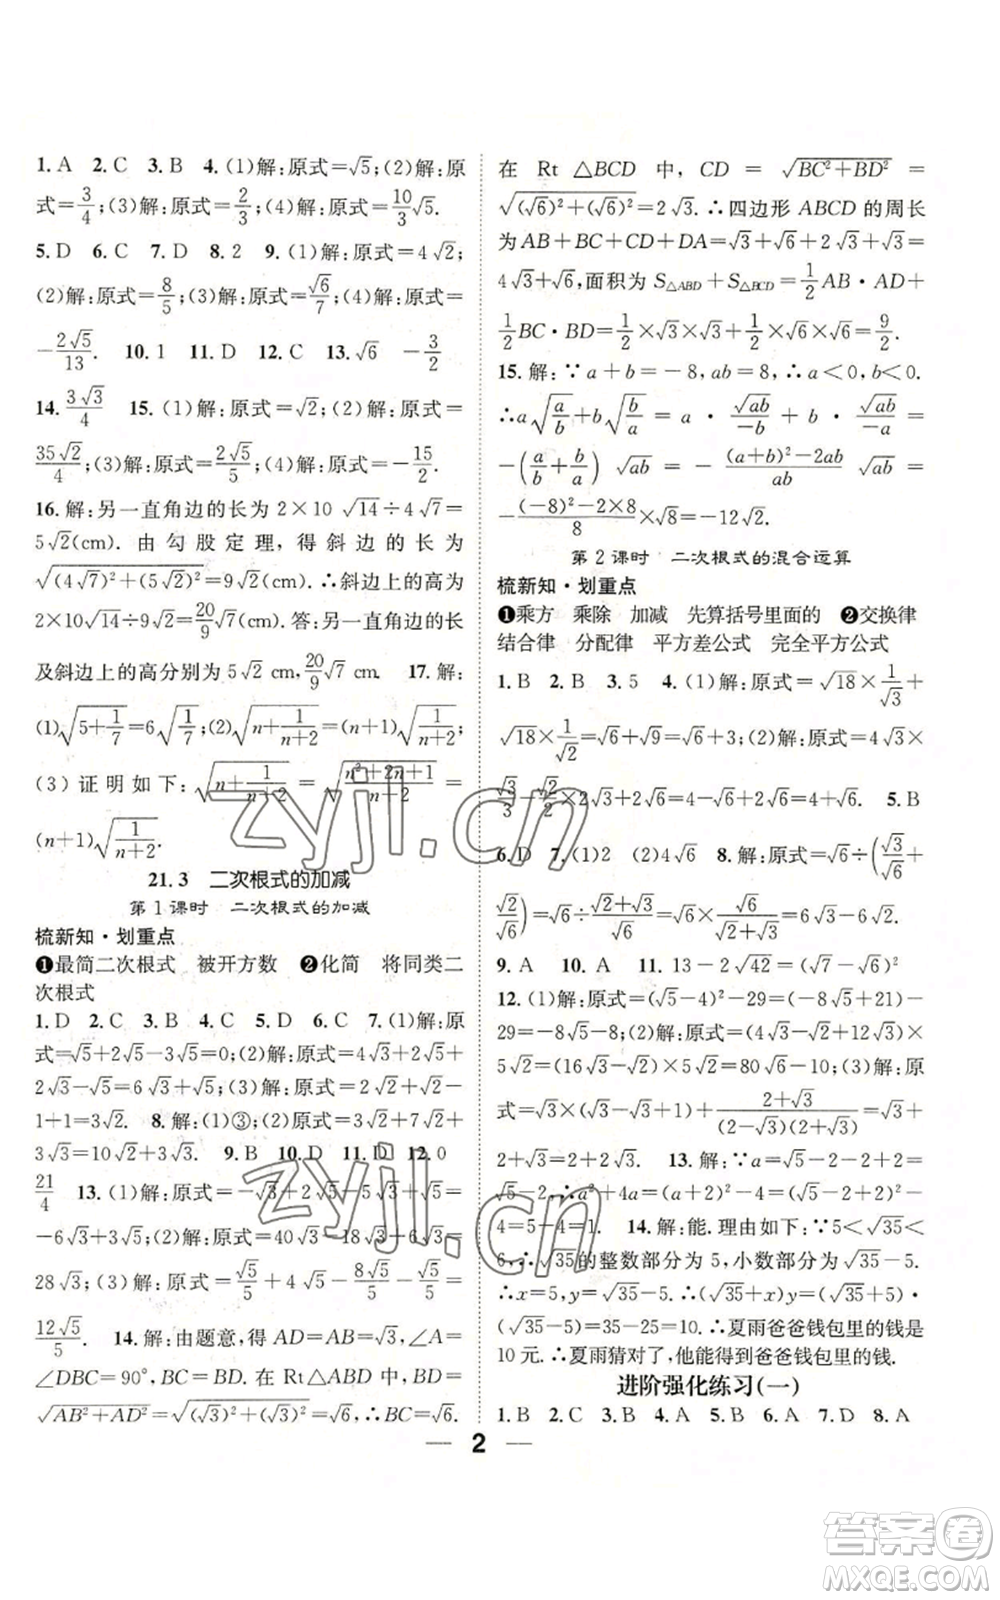 1. A　2. C　3. B　4. (1)解:原式=√5;(2)解:原
式=3/4;(3)解:原式=2/3;(4)解:原式=10/3√5.
5. D　6. C　7. D　8. 2　9. (1)解:原式=4√2;
(2)解:原式=8/5;(3)解:原式=√6/7;(4)解:原式=
-2√5/13.　10. 1　11. D　12. C　13. √6　-3/2
14. 3√3/4　15. (1)解:原式=√2;(2)解:原式=
35√2/4;(3)解:原式=2√5/5;(4)解:原式=-√15/2.
16. 解:另一直角边的长为 2×10√14÷4√7=
5√2(cm). 由勾股定理,得斜边的长为
√((4√7)²+(5√2)²)=9√2(cm). ∴斜边上的高为
2×10√14÷9√2=20/9√7(cm). 答:另一直角边的长
及斜边上的高分别为 5√2 cm, 20/9√7 cm.　17. 解:
(1)√(5+1/7)=6√(1/7);(2)√(n+1/(n+2))=(n+1)√(1/(n+2));
(3)证明如下:√(n+1/(n+2))=√((n²+2n+1)/(n+2))=
(n+1)√(1/(n+2)).
21.3　二次根式的加减
第1课时　二次根式的加减
梳新知·划重点
❶最简二次根式　被开方数　❷化简　将同类二
次根式
1. D　2. C　3. C　4. A　5. D　6. C　7. (1)解:原
式=√5+2√5-3√5=0;(2)解:原式=4√3+√5+
2√3-√5=6√3;(3)解:原式=2√2+1+√2-
1+1=3√2.　8. 解:(1)③;(2)原式=2√3+7√2+
3√3=5√3+7√2.　9. B　10. D　11. D　12. 0
21/4　13. (1)解:原式=-√3+2√5-5√3+√5=
-6√3+3√5;(2)解:原式=40√3-18√3+6√3=
28√3;(3)解:原式=√5/5+4√5-8√5/5-√5/5=
12√5/5.　14. 解:由题意,得 AD=AB=√3,∠A=
∠DBC=90°,BC=BD. 在 Rt△ABD 中,BD=
√(AB²+AD²)=√((√3)²+(√3)²)=√6,∴BC=√6.
在 Rt△BCD 中,CD=√(BC²+BD²)=
√((√6)²+(√6)²)=2√3. ∴四边形 ABCD 的周长
为 AB+BC+CD+DA=√3+√6+2√3+√3=
4√3+√6,面积为 S△ABD+S△BCD=1/2AB·AD+
1/2BC·BD=1/2×√3×√3+1/2×√6×√6=9/2.
15. 解:∵a+b=-8,ab=8,∴a<0,b<0.
∴a√(a/b)+b√(b/a)=a·√ab/-b+b·√ab/-a=
-(a/b+b/a)√ab=-((a+b)²-2ab)/ab √ab=
-((-8)²-2×8)/8×√8=-12√2.
第2课时　二次根式的混合运算
梳新知·划重点
❶乘方　乘除　加减　先算括号里面的　❷交换律
结合律　分配律　平方差公式　完全平方公式
1. B　2. B　3. 5　4. (1)解:原式=√18×1/√3+
√18×1/√2=√6+3;(2)解:原式=4√3×
√3/3-√2/2×2√3+2√6=4-√6+2√6=4+√6.　5. B
6. D　7. (1)2　(2)4√6　8. 解:原式=√6÷(√3/√6+
√2/√6)=√6÷(√2+√3)/√6=√6×√6/(√2+√3)=6√3-6√2.
9. A　10. A　11. 13-2√42=(√7-√6)²
12. (1)解:原式=(√5-4)²-29=(-8√5+21)-
29=-8√5-8;(2)解:原式=(4√3-√2+12√3)×
5√2=(16√3-√2)×5√2=80√6-10;(3)解:原
式=√3×(√3-√2)+√6+(2+√3)/((2-√3)(2+√3))=3-√6+√6+
2+√3=5+√3.　13. 解:∵a=√5-2-2+2=
√5-2,∴a²+4a=(a+2)²-4=(√5-2+2)²-
4=5-4=1.　14. 解:能. 理由如下:∵5<√35<
6,∴√35的整数部分为 5,小数部分为√35-5.
∴x=5,y=√35-5. ∴(√35+x)y=(√35+5)×
(√35-5)=35-25=10. ∴夏雨爸爸钱包里的钱是
10 元. ∴夏雨猜对了,他能得到爸爸钱包里的钱.
进阶强化练习(一)
1. B　2. C　3. C　4. A　5. C　6. A　7. D　8. A
2
zyjl.cn
zyjl.cn
答案圈
MXQE.COM